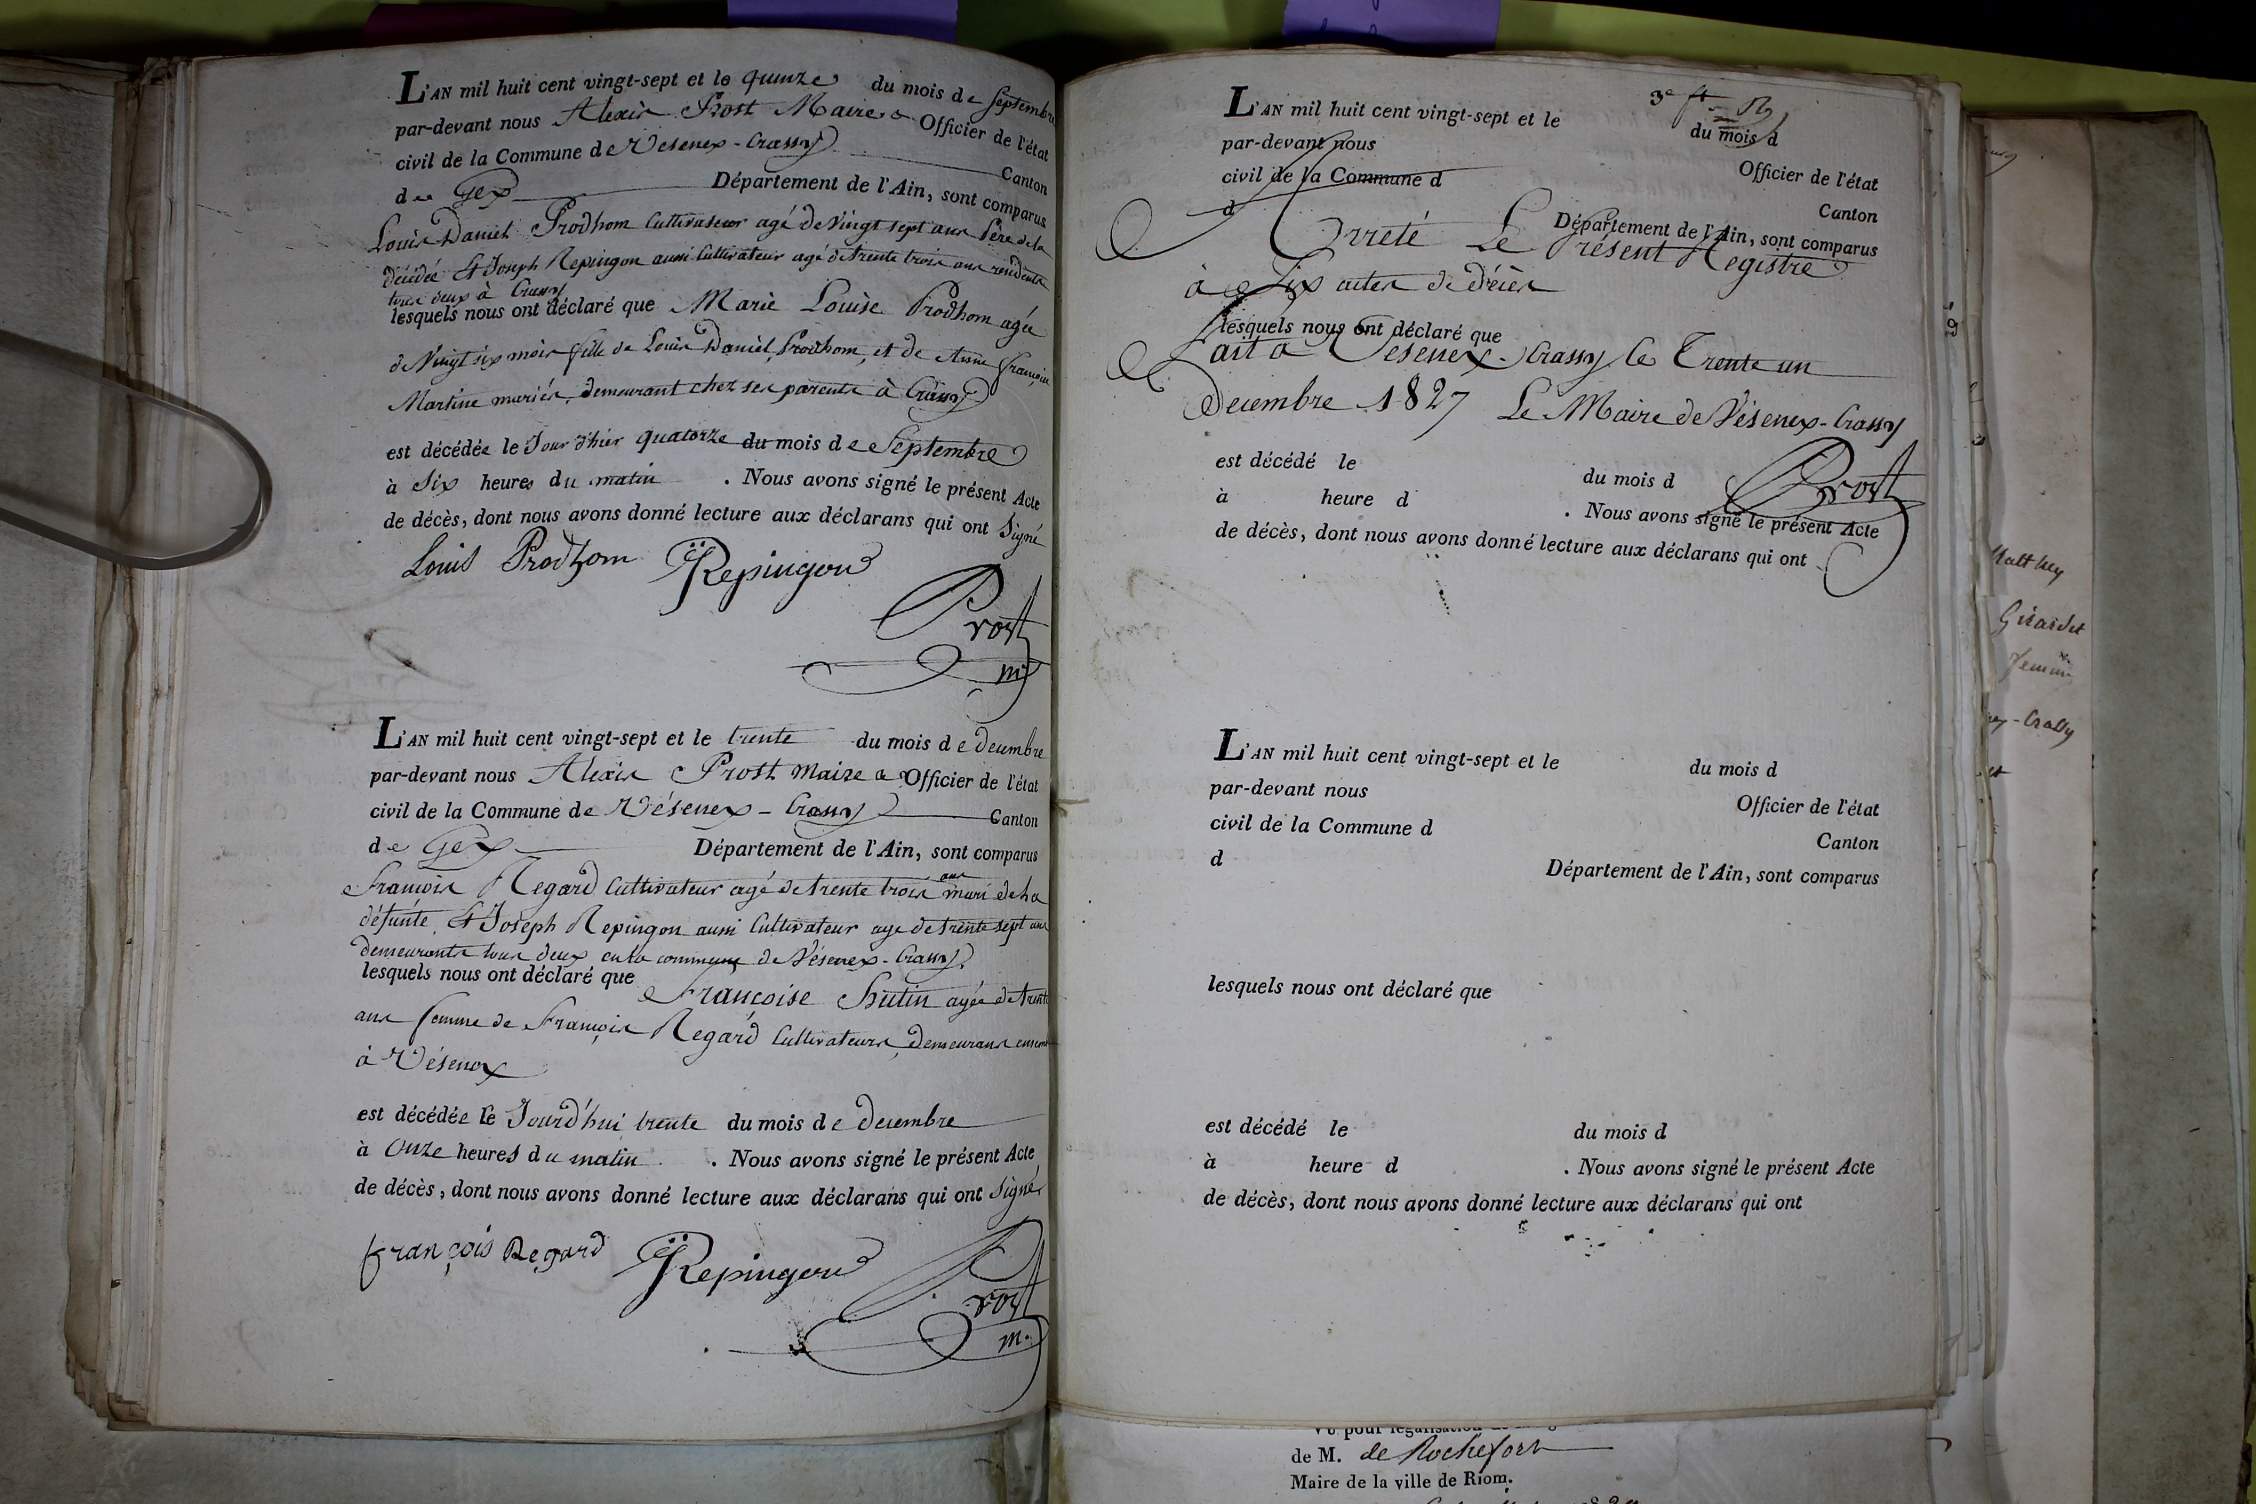 L'AN mil huit cent vingt-sept et le quinze du mois de Septembre
par-devant nous Alexis Prost Maire & Officier de l'état
civil de la Commune de Vesenex-Crassy Canton
de Gex Département de l'Ain, sont comparus
Louis Daniel Prodhom Cultivateur agé de Vingt sept ans Père de la
décédée Et Joseph Repingon aussi Cultivateur agé de trente trois ans residents
tous deux à Crassy
lesquels nous ont déclaré que Marie Louise Prodhom agée
de Vingt six mois fille de Louis Daniel Prodhom, et de Françoise
Martine mariés, demeurant chez ses parents à Crassy
est décédée le Jour d'hier quatorze du mois de Septembre
à Six heures du matin . Nous avons signé le présent Acte
de décès, dont nous avons donné lecture aux déclarans qui ont Signé
Louis Prodhom JRepingon
Prost
m
L'AN mil huit cent vingt-sept et le trente du mois de decembre
par-devant nous Alexis Prost Maire & Officier de l'état
civil de la Commune de Vésenex-Crassy Canton
de Gex Département de l'Ain, sont comparus
François Regard Cultivateur agé de trente trois ans mari de la
défunte, Et Joseph Repingon aussi Cultivateur age de trente sept ans
demeurants tous deux en la commune de Vésenex-Crassy.
lesquels nous ont déclaré que Françoise Hutin agée de trente
ans femme de François Regard Cultivateurs, demeurans
à Vésenex
est décédée le Jourd'hui trente du mois de decembre
à Onze heures du matin . Nous avons signé le présent Acte
de décès, dont nous avons donné lecture aux déclarans qui ont Signé
François Regard JRepingon
Prost
m.
3e
L'AN mil huit cent vingt-sept et le du mois d
par-devant nous Officier de l'état
civil de la Commune d Canton
d Département de l'Ain, sont comparus
Arreté Le Présent Registre
à Six actes de décès
lesquels nous ont déclaré que
Fait à Vesenex-Crassy le Trente un
Decembre 1827 Le Maire de Vésenex-Crassy
est décédé le du mois d
Prost
à heure d . Nous avons signé le présent Acte
de décès, dont nous avons donné lecture aux déclarans qui ont
L'AN mil huit cent vingt-sept et le du mois d
par-devant nous Officier de l'état
civil de la Commune d Canton
d Département de l'Ain, sont comparus
lesquels nous ont déclaré que
est décédé le du mois d
à heure d . Nous avons signé le présent Acte
de décès, dont nous avons donné lecture aux déclarans qui ont
Matthey
Girardet
Vu pour légalisation
de M. de Rochefort
Maire de la ville de Riom.